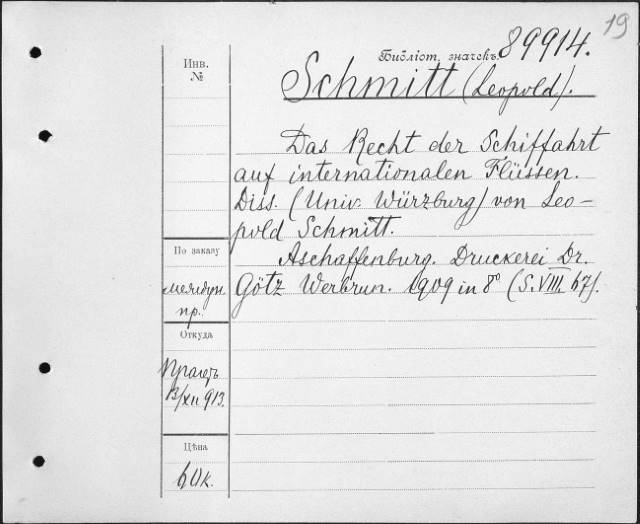 19
Библіот. значекъ 89914.
Инв.
№
Schmitt (Leopold).
Das Recht der Schiffahrt
auf internationalen Flüssen.
Diss. (Univ. Würzburg) von Leo-
pold Schmitt.
По заказу
Aschaffenburg. Druckerei Dr.
междун.
пр.
Götz Werbrun. 1909 in 8° (S. VIII, 67).
Откуда
13/XII 913.
Цѣна
60к.